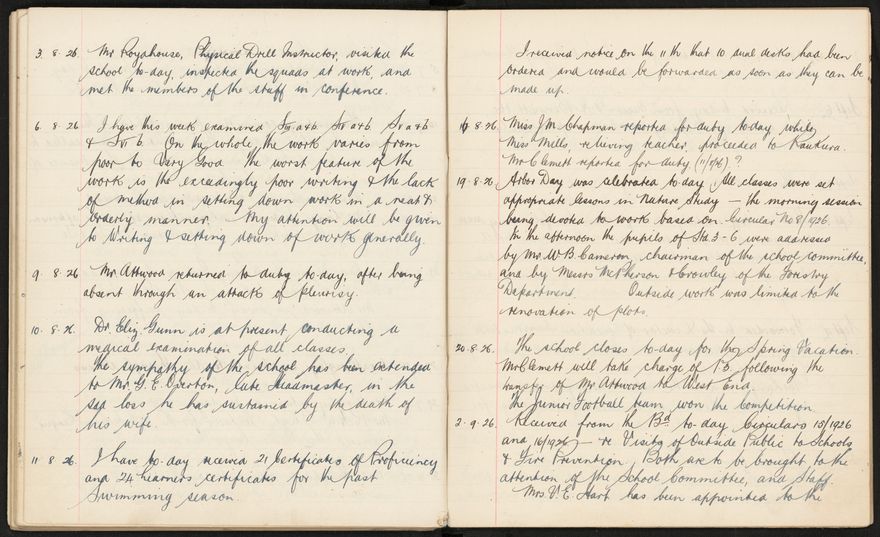 3. 8. 26. Mr Roydhouse, Physical Drill Instructor, visited the
school to-day, inspected the squads at work, and
met the members of the staff in conference.
6. 8. 26 I have this week examined SIII a & b. SIV a & b. SV a & b
& SVI b. On the whole, the work varies from
poor to Very Good the worst feature of the
work is the exceedingly poor writing & the lack
of method in setting down work in a neat &
orderly manner. My attention will be given
to Writing & setting down of work generally.
9. 8. 26 Mr. Attwood returned to duty to-day, after being
absent through an attack of pleurisy.
10. 8. 26. Dr. Eliz. Gunn is at present conducting a
medical examination of all classes.
The sympathy of the school has been extended
to Mr. G. E. Overton, late Headmaster, in the
sad loss he has sustained by the death of
his wife.
11 8 26. I have to-day received 21 Certificates of Proficiency
and 24 Learners certificates for the past
Swimming season.
I received notice on the 11th that 10 dual desks had been
ordered and would be forwarded as soon as they can be
made up.
16. 8. 26. Miss J M Chapman reported for duty to-day while
Miss Mills, relieving teacher, proceeded to Raukura.
Mr Clemett reported for duty (11/8/26)?
19. 8. 26 Arbor Day was celebrated to-day. All classes were set
appropriate lessons in Nature Study — the morning session
being devoted to work based on Circular No 8/1926.
In the afternoon the pupils of Std. 3 - 6 were addressed
by Mr. W B. Cameron, chairman of the school committee,
and by Messrs McPherson & Crowley of the Forestry
Department. Outside work was limited to the
renovation of plots.
20. 8. 26. The school closes to-day for the Spring Vacation.
Mr Clemett will take charge of following the
transfer of Mr Attwood to West End.
The Junior Football team won the Competition
2. 9. 26. Received from the Bd to-day Circulars 15/1926
and 16/1926 — re Visitg of Outside Public to Schools
& Fire Prevention. Both are to be brought to the
attention of the School Committee, and Staff.
Mrs. V. E. Hart has been appointed to the